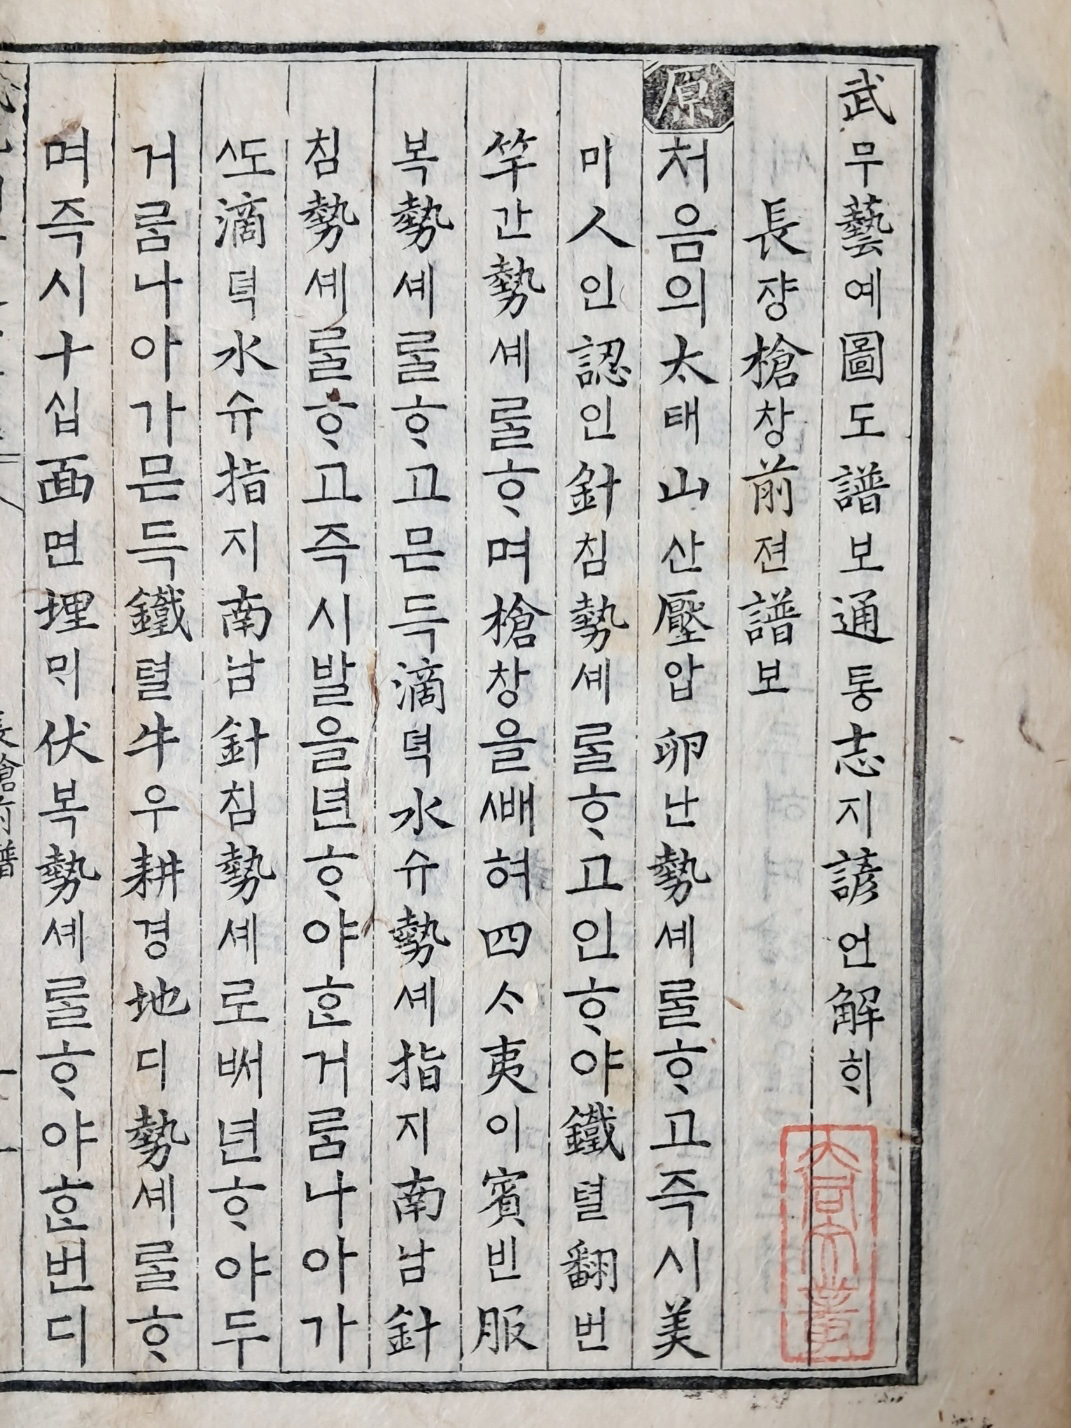 武무藝예圖도譜보通통志지諺언解ᄒᆡ
長쟝槍창前젼譜보
原
처음의太태山산壓압卵난勢셰ᄅᆞᆯᄒᆞ고즉시美
미人인認인針침勢셰ᄅᆞᆯᄒᆞ고인ᄒᆞ야鐵텰翻번
竿간勢셰ᄅᆞᆯᄒᆞ며槍창을ᄲᅢ혀四ᄉᆞ夷이賓빈服
복勢셰ᄅᆞᆯᄒᆞ고믄득滴뎍水슈勢셰指지南남針
침勢셰ᄅᆞᆯᄒᆞ고즉시발을년ᄒᆞ야ᄒᆞᆫ거룸나아가
ᄯᅩ滴뎍水슈指지南남針침勢셰로ᄡᅥ년ᄒᆞ야두
거룸나아가믄득鐵텰牛우耕경地디勢셰ᄅᆞᆯᄒᆞ
며즉시十십面면埋ᄆᆡ伏복勢셰ᄅᆞᆯᄒᆞ야ᄒᆞᆫ번디